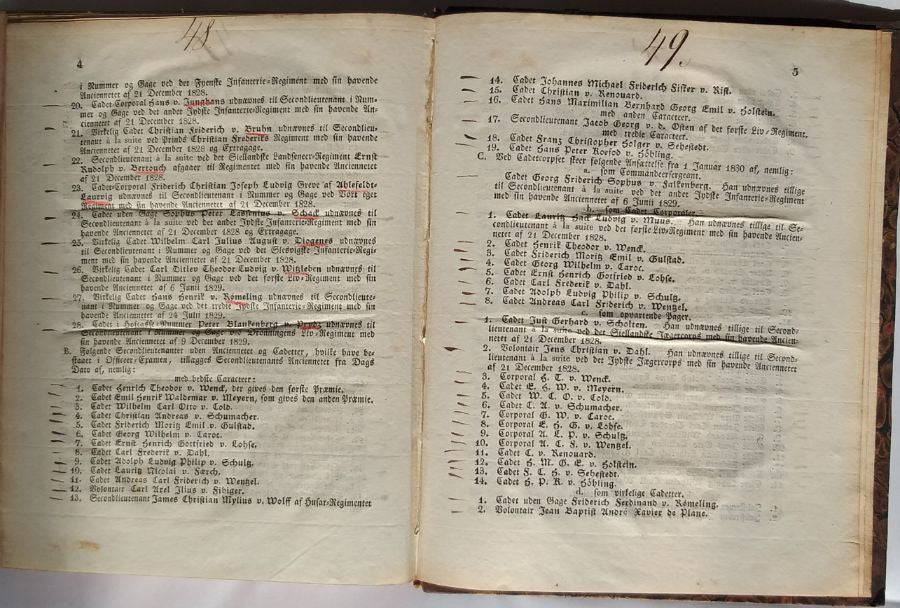 48
4
i Nummer og Gage ved det Fyenske Infanterie-Regiment med sin havende
Anciennetet af 21 December 1828.
20. Cadet-Corporal Hans v. Junghans udnævnes til Secondlieutenant i Num-
mer og Gage ved det andet Jydske Infanterie-Regiment med sin havende An-
ciennetet af 21 December 1828.
21. Virkelig Cadet Christian Friderich v. Bruhn udnævnes til Secondlieu-
tenant à la suite ved Prinds Christian Frederiks Regiment med sin havende
Anciennetet af 21 December 1828 og Extragage.
22. Secondlieutenant à la suite ved det Siellandske Landseneer-Regiment Ernst
Rudolph v. Bertouch afgaaer til Regimentet med sin havende Anciennetet
af 21 December 1828.
23. Cadet-Corporal Friderich Christian Joseph Ludvig Greve af Ahlefeldt-
Laurvig udnævnes til Secondlieutenant i Nummer og Gage ved Vort eget
Regiment med sin havende Anciennetet af 21 December 1828.
24. Cadet uden Gage Sophus Peter Lassenius v. Schack udnævnes til
Secondlieutenant à la suite ved det andet Jydske Infanterie-Regiment med sin
havende Anciennetet af 21 December 1828 og Extragage.
25. Virkelig Cadet Wilhelm Carl Julius August v. Diogenes udnævnes
til Secondlieutenant i Nummer og Gage ved det Slesvigske Infanterie-Regi-
ment med sin havende Anciennetet af 21 December 1828.
26. Virkelig Cadet Carl Ditlev Theodor Ludvig v Witzleben udnævnes til
Secondlieutenant i Nummer og Gage ved det første Liv-Regiment med sin
havende Anciennetet af 6 Junii 1829.
27. Virkelig Cadet Hans Henrik v. Rømeling udnævnes til Secondlieute-
nant i Nummer og Gage ved det tredie Jydske Infanterie-Regiment med sin
havende Anciennetet af 24 Julii 1829.
28. Cadet i Hofcasse-Nummer Peter Blankenberg v. Prydz udnævnes til
Secondlieutenant i Nummer og Gage ved Dronningens Liv-Regiment med
sin havende Anciennetet af 9 December 1829.
B. Følgende Secondlieutenanter uden Anciennetet og Cadetter, hvilke have be-
staaet i Officeer-Examen tillægges Secondlieutenants Anciennetet fra Dags
Dato af, nemlig:
med bedste Caracteer:
1. Cadet Henrich Theodor v. Wenck, der gives den første Præmie.
2. Cadet Emil Henrik Waldemar v. Meyern, som gives den anden Præmie.
3. Cadet Wilhelm Carl Otto v. Cold.
4. Cadet Christian Andreas v. Schumacher.
5. Cadet Friderich Moritz Emil v. Gulstad.
6. Cadet Georg Wilhelm v. Caroc.
7. Cadet Ernst Henrich Gortfried v. Lohse.
8. Cadet Carl Frederik v. Dahl.
9. Cadet Adolph Ludvig Philip v. Schultz.
10. Cadet Lauritz Nicolai v. Færch.
11. Cadet Andreas Carl Friderich v. Wentzel.
12. Volontair Carl Axel Ilius v. Fibiger.
13. Secondlieutenant James Christian Mylius v. Wolff af Husar-Regimentet
49.
5
14. Cadet Johannes Michael Friderich Fister v. Rist.
15. Cadet Christian v. Renouard.
16. Cadet Hans Maximilian Bernhard Georg Emil v. Holstein.
med anden Caracteer.
17. Secondlieutenant Jacob Georg v. d. Osten af det første Liv-Regiment.
med tredie Caracteer.
18. Cadet Franz Christopher Holger v. Sehestedt.
19. Cadet Hans Peter Kofod v. Høhling.
C. Ved Cadetcorpset skeer følgende Ansættelse fra 1 Januar 1830 af, nemlig:
a. som Commandeersergeant.
Cadet Georg Friderich Sophus v Falkenberg. Han udnævnes tillige
til Secondlieutenant à la suite ved det andet Jydske Infanterie-Regiment
med sin havende Anciennetet af 6 Junii 1829.
b. som Cadet Corporaler.
1. Cadet Lauritz Hack Ludvig v. Muus. Han udnævnes tillige til Se-
condlieutenant à la suite ved det første Liv-Regiment med sin havende Ancien-
netet af 21 December 1828.
2. Cadet Henrik Theodor v. Wenck.
3. Cadet Friderich Moritz Emil v. Gulstad.
4. Cadet Georg Wilhelm v. Caroc.
5. Cadet Ernst Henrich Gotfried v. Lohse.
6. Cadet Carl Frederik v. Dahl.
7. Cadet Adolph Ludvig Philip v. Schultz.
8. Cadet Andreas Carl Friderich v. Wentzel.
c. som opvartende Pager.
1. Cadet Just Gerhard v. Scholten. Han udnævnes tillige til Second-
lieutenant à la suite ved det Siellandske Jægercorps med sin havende Ancien-
netet af 21 December 1828.
2. Volontair Jens Christian v. Dahl. Han udnævnes tillige til Second-
lieutenant à la suite ved det Jydske Jægercorps med sin havende Anciennetet
af 21 December 1828.
3. Corporal H. T. v. Wenck.
4. Cadet E. H. W. v. Meyern.
5. Cadet W. C. O. v. Cold.
6. Cadet C. A. v. Schumacher.
7. Corporal G. W. v. Caroc.
8. Corporal E. H. G. v. Lohse.
9. Corporal A. L. P. v. Schultz.
10. Corporal A. C. F. v. Wentzel.
11. Cadet C. v. Renouard.
12. Cadet H. M. G. E. v. Holstein.
13. Cadet F. C. H. v. Sehestedt.
14. Cadet H. P. K. v. Høhling.
d. som virkelige Cadetter.
1. Cadet uden Gage Friderich Ferdinand v. Rømeling.
2. Volontair Jean Baptist André Xavier de Plane.